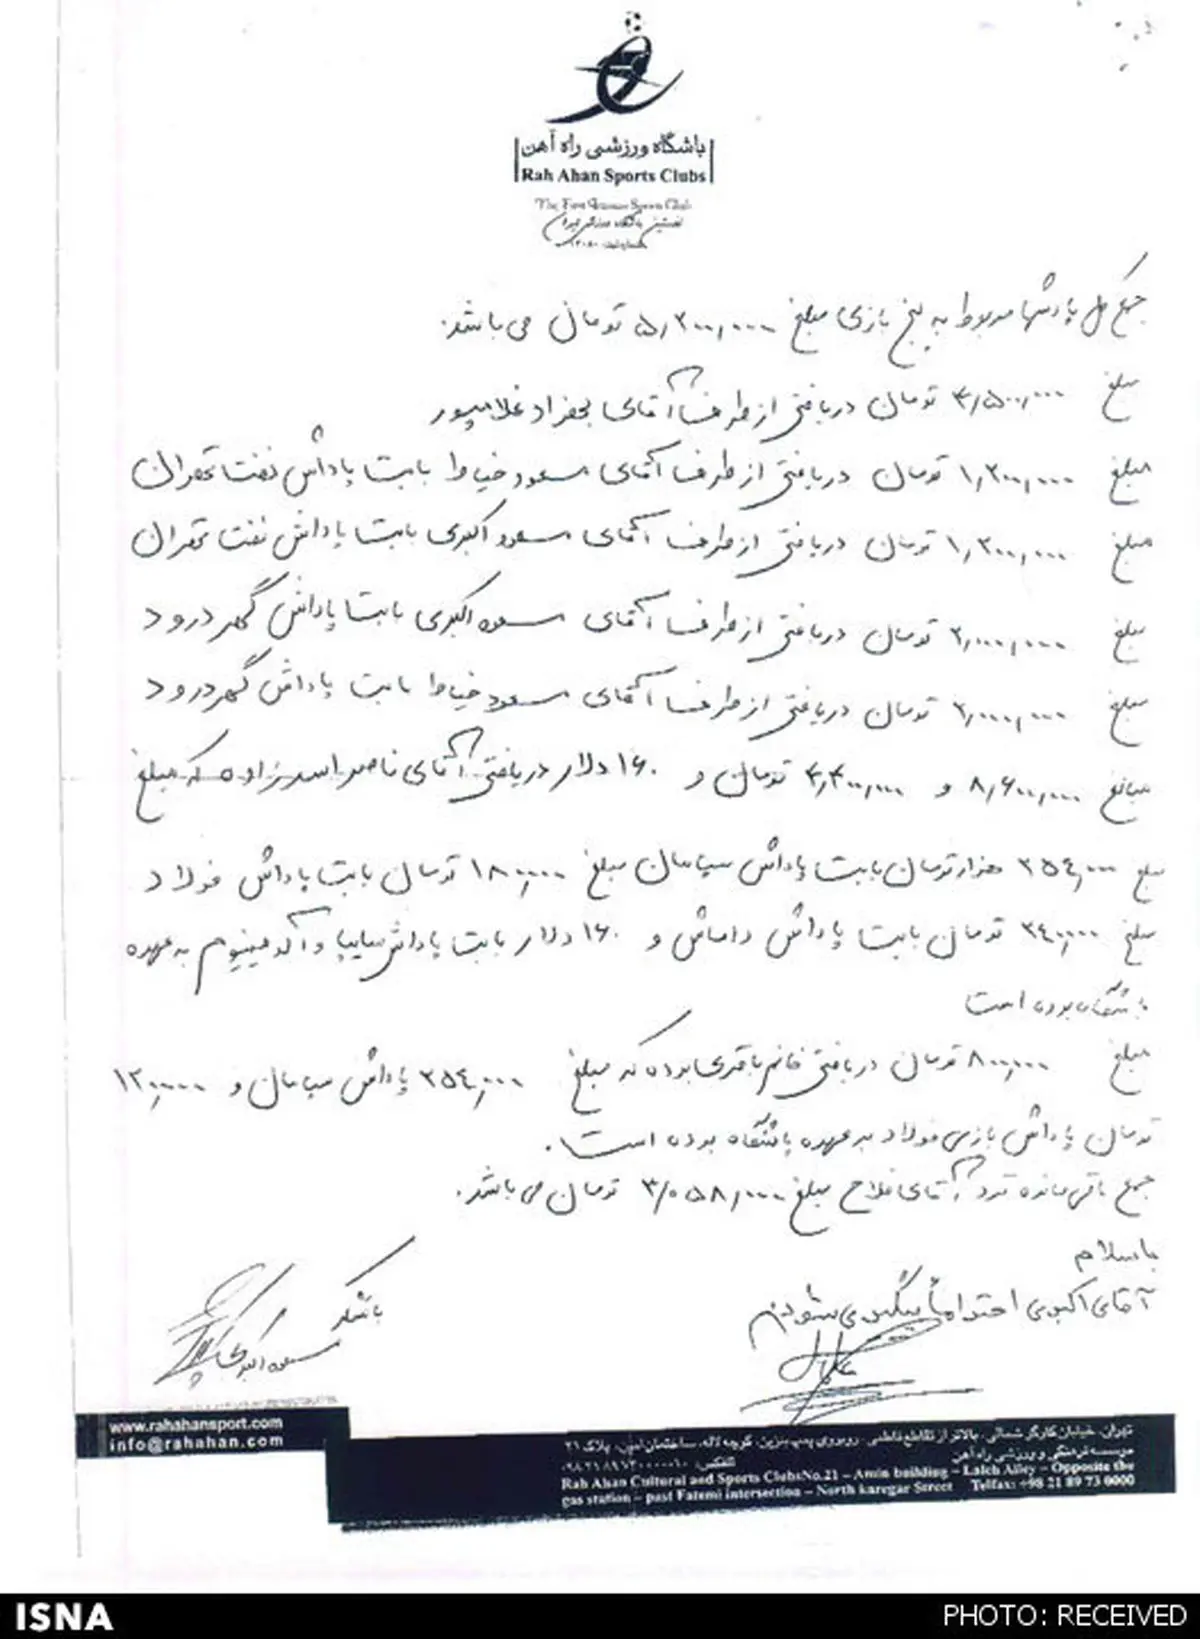 باشگاه ورزشی راه آهن
Rah Ahan Sports Clubs
The First Iranian Sports Club
نخستین باشگاه ورزشی ایران
جمع کل پاداشها مربوط به پنج بازی مبلغ ۵/۲۰۰/۰۰۰ تومان می باشد.
مبلغ ۴/۵۰۰/۰۰۰ تومان دریافتی از طرف آقای بهزاد غلامپور
مبلغ ۱/۲۰۰/۰۰۰ تومان دریافتی از طرف آقای مسعود خیاط بابت پاداش نفت تهران
مبلغ ۱/۲۰۰/۰۰۰ تومان دریافتی از طرف آقای مسعود اکبری بابت پاداش نفت تهران
مبلغ ۲/۰۰۰/۰۰۰ تومان دریافتی از طرف آقای مسعود اکبری بابت پاداش گهر درود
مبلغ ۲/۰۰۰/۰۰۰ تومان دریافتی از طرف آقای مسعود خیاط بابت پاداش گهر درود
مبالغ ۸/۶۰۰/۰۰۰ و ۴/۴۰۰/۰۰۰ تومان و ۱۶۰ دلار دریافتی آقای ناصر اسدزاده که مبلغ
مبلغ ۳۵۴/۰۰۰ هزار تومان بابت پاداش سپاهان مبلغ ۱۸۰/۰۰۰ تومان بابت پاداش فولاد
مبلغ ۳۴۰/۰۰۰ تومان بابت پاداش داماش و ۱۶۰ دلار بابت پاداش سایپا و آلومینیوم به عهده
باشگاه بوده است
مبلغ ۸۰۰/۰۰۰ تومان دریافتی خانم باقری بوده که مبلغ ۳۵۴/۰۰۰ پاداش سپاهان و ۱۲۰/۰۰۰
تومان پاداش بازی فولاد به عهده باشگاه بوده است.
جمع باقی مانده نزد آقای فلاح مبلغ ۳/۰۵۸/۰۰۰ تومان می باشد.
باسلام
آقای اکبری احتراماً پیگیری شود
باتشکر
مسعود اکبری
www.rahahansport.com
info@rahahan.com
تهران، خیابان کارگر شمالی، بالاتر از تقاطع فاطمی، روبروی پمپ بنزین، کوچه لاله، ساختمان امین، پلاک ۲۱
موسسه فرهنگی و ورزشی راه آهن
Rah Ahan Cultural and Sports ClubsNo.21 – Amin building – Laleh Alley – Opposite the
gas station – past Fatemi intersection – North karegar Street Telfax: +98 21 89 73 0000
ISNA
PHOTO: RECEIVED